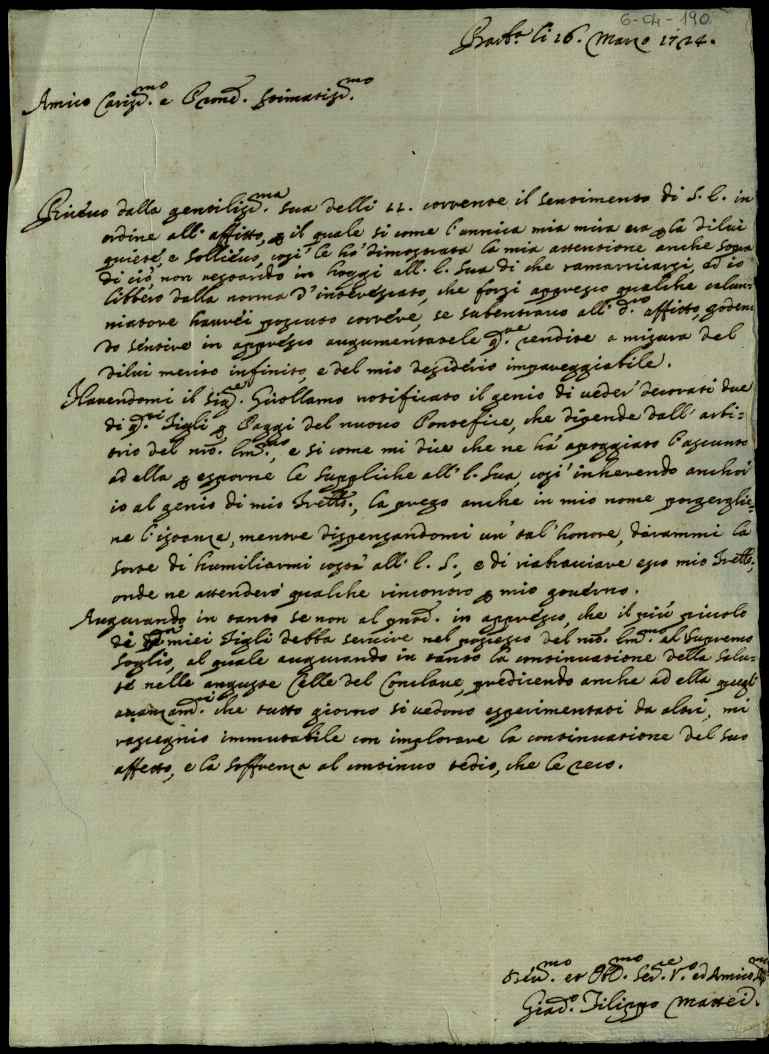 6-CH-190
Barb.a li 16. Marzo 1724.
Amico Cariss.mo e Pron. Stimatiss.mo
Ricévo dalla gentiliss.ma sua delli 11. corrente il sentimento di S. E. in
ordine all'affitto, il quale si come l'unnica mia mira era la dilui
quiete, e sollievo, così le hò dimostrata la mia attentione anche sopra
di ciò, non restando in hoggi all'E. Sua di che ramaricarsi, ed io
libbero dalla norma d'interessato, che forsi appresso qualche calun-
niatore haurei possuto corrére, se subentravo all' d.o affitto, goden-
do sentire in appresso augumentarsele q.ne rendite a misura del
dilui merito infinito, e del mio desidério impareggiabile.
Havendomi il Sig.re Girollamo notificato il genio di ueder decorati due
di q.sti figli Paggi del nuovo Pontefice, che dipende dall'arbi-
trio del nro. Em.mo, e si come mi dice che ne hà appoggiato l'assunto
ad ella esporne le suppliche all'E. Sua, così inherendo anch'
io al genio di mio Fretto., la prego anche in mio nome porgerglie-
ne l'istanze, mentre dispensandomi un' tal'honore, darammi la
sorte di humiliarmi costà all'E. S., e di riabraciare esso mio Fretto.,
onde ne attenderò qualche rincontro mio govérno.
Augurando in tanto se non al pnte. in appresso, che il più piccolo
de miei figli debba servire nel possesso del nro. Em.mo al Supremo
Soglio, al quale augurando in tanto la continuatione della salu-
te nelle anguste Celle del Conclave, predicendo anche ad ella quegl'
auanzam.ti che tutto giorno si vedono esperimentati da altri, mi
rassegnio immutabile con implorare la continuatione del suo
affetto, e la soffrenza al continuo tedio, che le reco.
Deu.mo et Obb.mo Ser.re V.o ed Amico
Giad.o Filippo Mattei.